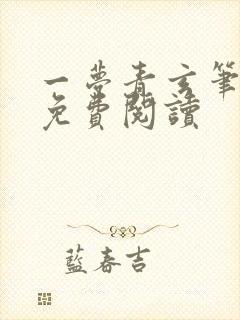 一夢青玄筆
免費閱讀
藍春吉